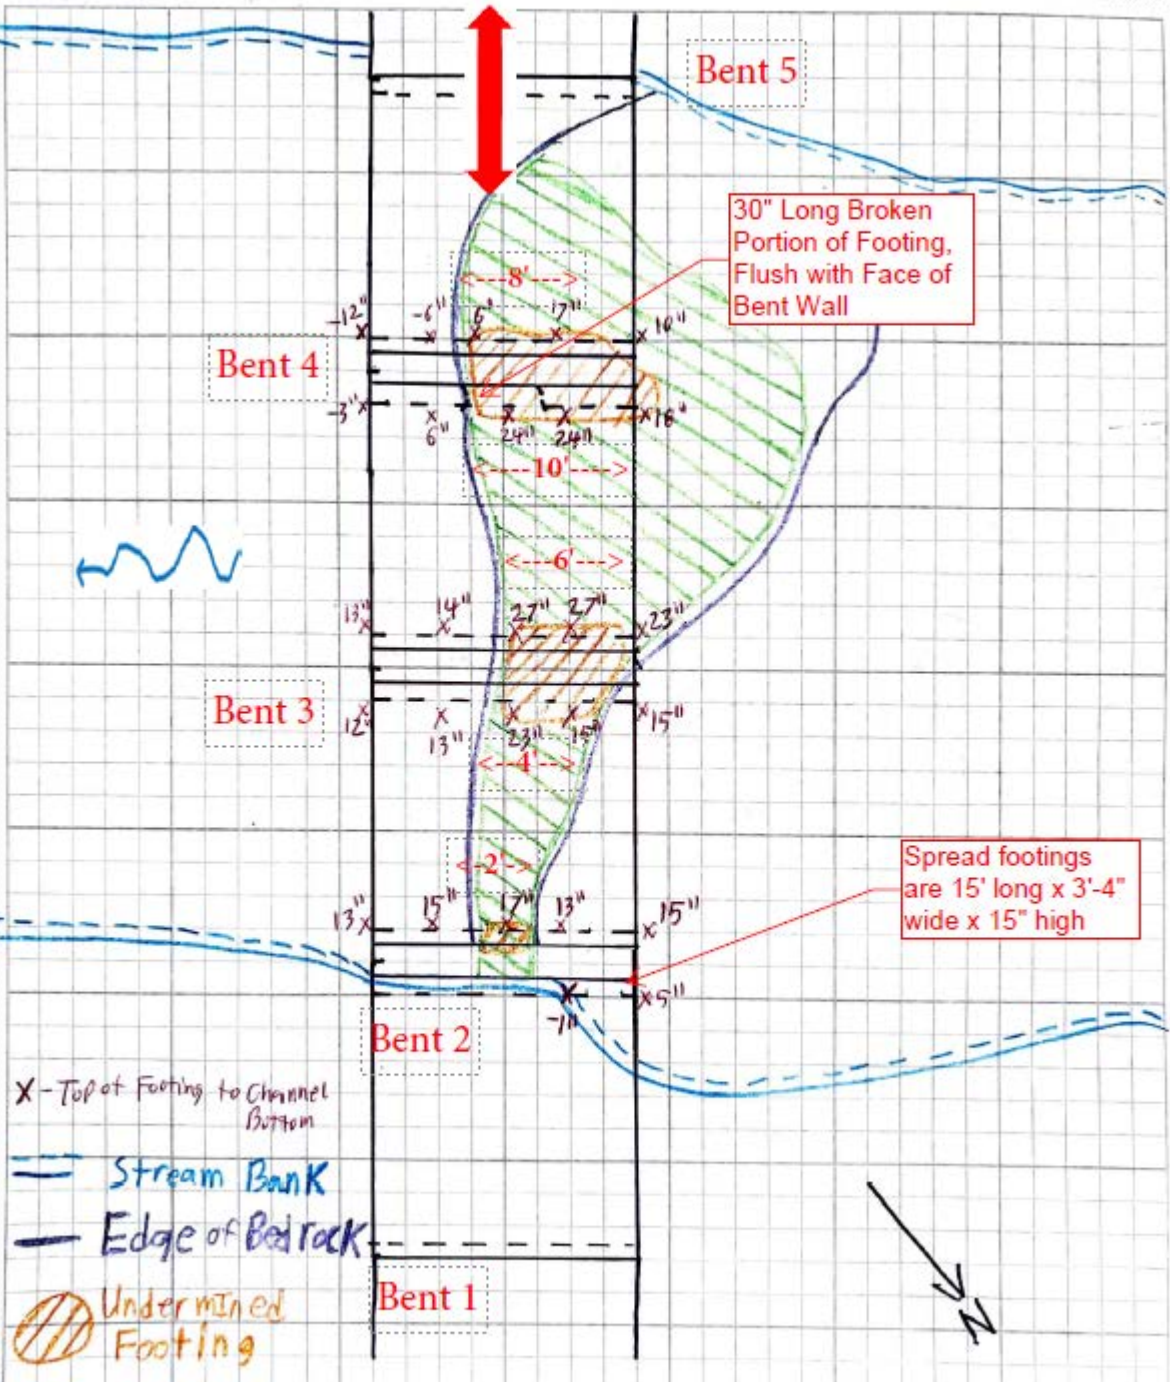 Bent 5
30" Long Broken
Portion of Footing,
Flush with Face of
Bent Wall
<--8'-->
-12"
-6"
6"
17"
10"
Bent 4
-3"
6"
24"
24"
18"
<----10'---->
<---6'--->
13"
14"
27"
27"
23"
Bent 3
12"
13"
23"
15"
15"
<---4'--->
<-2'->
13"
15"
17"
13"
15"
Spread footings
are 15' long x 3'-4"
wide x 15" high
-1"
5"
Bent 2
X - Top of Footing to Channel
Bottom
Stream Bank
Edge of Bedrock
Undermined
Footing
Bent 1
N